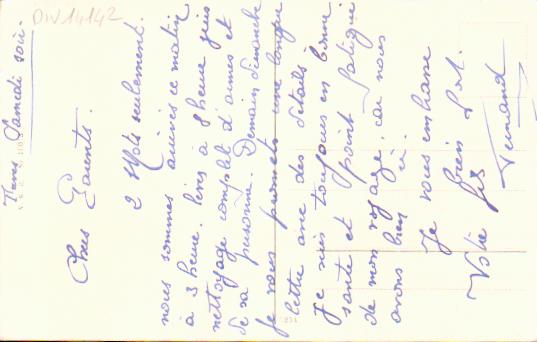 DIV14142
Samedi soir
Chers Parents.
2 Mots seulement.
nous sommes arrivés ce matin
à 3 heure. levés à 8 heure puis
nettoyage complet d'armes et
de sa personne. Demain dimanche
je vous promets une longue
lettre avec des détails
Je suis toujours en bonne
santé et point fatigué
de mon voyage, car nous
avons bien
Je vous embrasse
bien fort.
Votre fils
Fernand